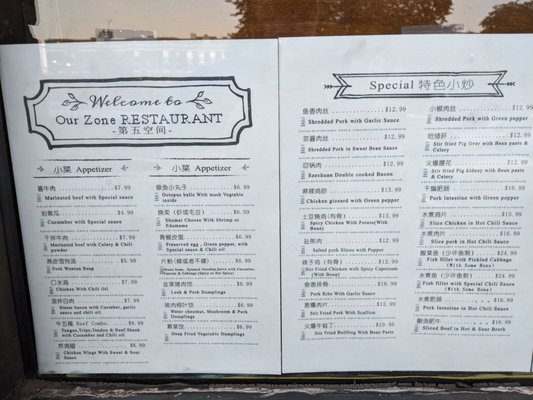 Welcome to
Our Zone RESTAURANT
-第五空间-
小菜 Appetizer
酱牛肉 $7.99
Marinated beef with Special sauce
拍黄瓜 $4.99
Cucumber with Special sauce
干拌牛肉 $7.99
Marinated beef with Celery & Chili
powder
燕皮馄饨汤 $5.99
Pork Wanton Soup
口水鸡 $7.99
Chicken with Chili Oil
蒜拌白肉 $7.99
Steam bacon with Cucumber, garlic
sauce and chili oil
牛五福 Beef Combo $8.99
Tongue, Tripe, Tendon & Beef Shank
with Cucumber and Chili oil
炸鸡翅 $6.99
Chicken Wings with Sweet & Sour
Sauce
小菜 Appetizer
章鱼小丸子 $6.99
Octopus balls With mask Vegetable
inside
烧卖 (虾或毛豆) $6.99
Shumai Choose With Shrimp or
Edamame
青椒皮蛋 $6.99
Preserved egg, Green pepper, with
Special sauce & Chili oil
$6.99
韭菜猪肉饺 $6.99
Leek & Pork Dumplings
猪肉椰叶饺 $6.99
Water chestnut, Mushroom & Pork
Dumplings
素菜饺 $6.99
Deep Fried Vegetable Dumplings
Special 特色小炒
鱼香肉丝 $12.99
Shredded Pork with Garlic Sauce
京酱肉丝 $12.99
Shredded Pork in Sweet Bean Sauce
回锅肉 $12.99
Szechuan Double cooked Bacon
麻辣鸡胗 $13.99
Chicken gizzard with Green pepper
土豆烧鸡(有骨) $12.99
Spicy Chicken with Potato(With
Bone)
盐煎肉 $12.99
Salted pork Slices with Pepper
辣子鸡 (有骨) $12.99
Stir Fried Chicken with Spicy Capsicum
(With Bone)
鱼香排骨 $16.99
Pork Ribs with Garlic Sauce
葱爆肉 $12.99
Stir Fried Pork with Scallion
火爆牛蛙 $19.95
Stir Fried Bullfrog with Bean Paste
小椒肉丝 $12.99
Shredded Pork with Green pepper
炝猪肝 $12.99
Stir fried Pig liver with Bean paste &
Celery
火爆腰花 $12.99
Stir fried Pig kidney with Bean paste
& Celery
干煸肥肠 $16.99
Pork Intestine with Green pepper
水煮鸡片 $15.99
Slice Chicken in Hot Chili Sauce
水煮肉片 $16.99
Slice pork in Hot Chili Sauce
酸菜鱼 (少许鱼刺) $26.99
Fish fillet with Pickled Cabbage
(With Some Bone)
水煮鱼 (少许鱼刺) $26.99
Fish fillet with Special Chili Sauce
(With Some Bone)
水煮肥肠 $16.99
Pork Intestine in Hot Chili Sauce
酸汤肥牛 $16.99
Sliced Beef in Hot & Sour Broth